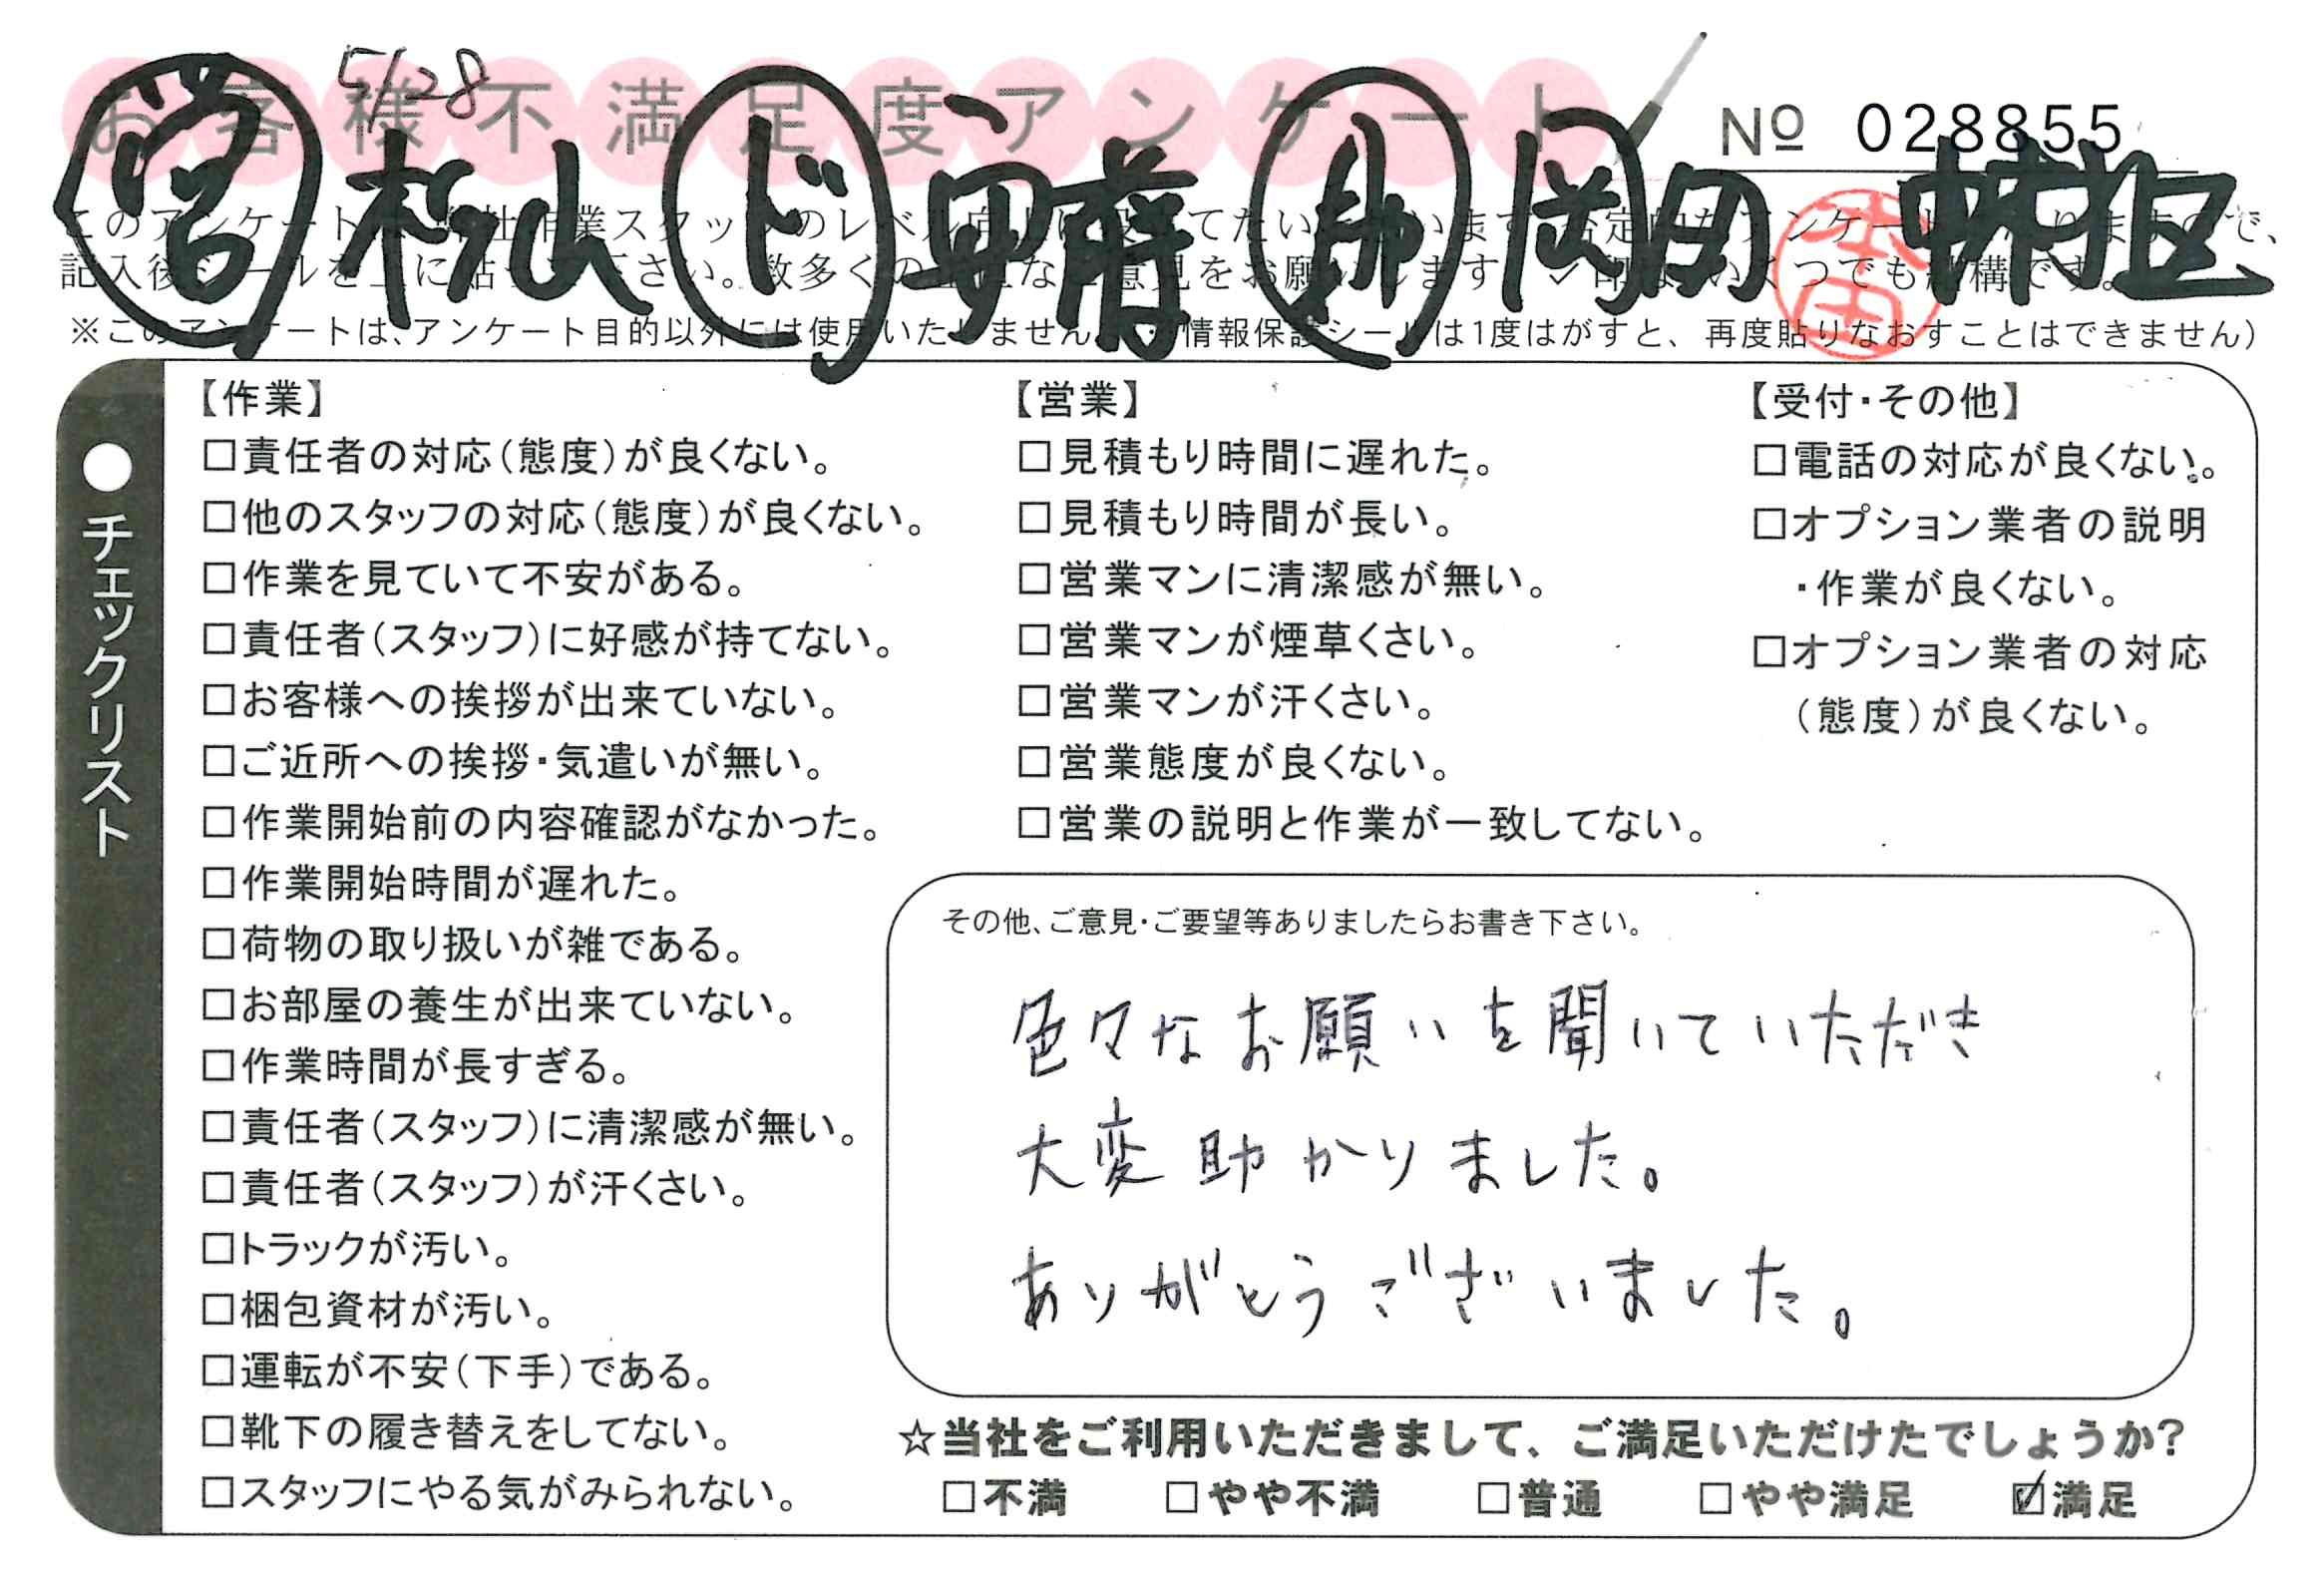 5/28
お客様不満足度アンケート
No 028855
営 松山 ド 安府 助 岡田
本田
※このアンケートは、アンケート目的以外には使用いたしません。 情報保護シールは1度はがすと、再度貼りなおすことはできません)
●チェックリスト
【作業】
□責任者の対応(態度)が良くない。
□他のスタッフの対応(態度)が良くない。
□作業を見ていて不安がある。
□責任者(スタッフ)に好感が持てない。
□お客様への挨拶が出来ていない。
□ご近所への挨拶・気遣いが無い。
□作業開始前の内容確認がなかった。
□作業開始時間が遅れた。
□荷物の取り扱いが雑である。
□お部屋の養生が出来ていない。
□作業時間が長すぎる。
□責任者(スタッフ)に清潔感が無い。
□責任者(スタッフ)が汗くさい。
□トラックが汚い。
□梱包資材が汚い。
□運転が不安(下手)である。
□靴下の履き替えをしてない。
□スタッフにやる気がみられない。
【営業】
□見積もり時間に遅れた。
□見積もり時間が長い。
□営業マンに清潔感が無い。
□営業マンが煙草くさい。
□営業マンが汗くさい。
□営業態度が良くない。
□営業の説明と作業が一致してない。
【受付・その他】
□電話の対応が良くない。
□オプション業者の説明
・作業が良くない。
□オプション業者の対応
(態度)が良くない。
その他、ご意見・ご要望等ありましたらお書き下さい。
色々なお願いを聞いていただき
大変助かりました。
ありがとうございました。
☆当社をご利用いただきまして、ご満足いただけたでしょうか?
□不満 □やや不満 □普通 □やや満足 ☑満足